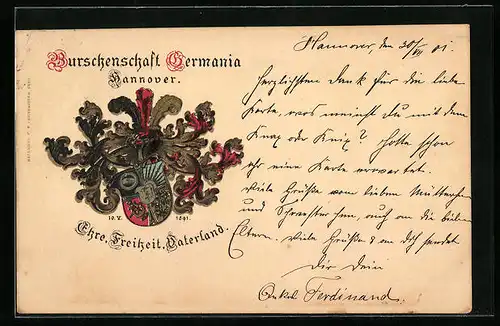 Burschenschaft Germania
Hannover.
10. V. 1891.
Ehre. Freiheit. Vaterland.
Hannover, den 30/VII 01.
Herzlichsten Dank für die liebe
Karte, was meinst du mit dem
Knax oder Knix? Hatte schon
oft eine Karte erwartet.
Viele Grüße vom lieben Mütterchen
und Schwesterchen, auch an die lieben
Eltern. Viele Grüße sendet
Dir Dein
Onkel Ferdinand.